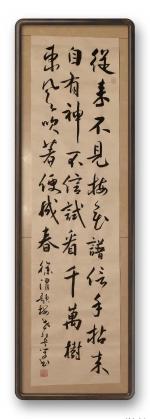 從来不見梅花譜信手拈来
自有神不信試看千萬樹
東風吹著便成春
徐渭題梅